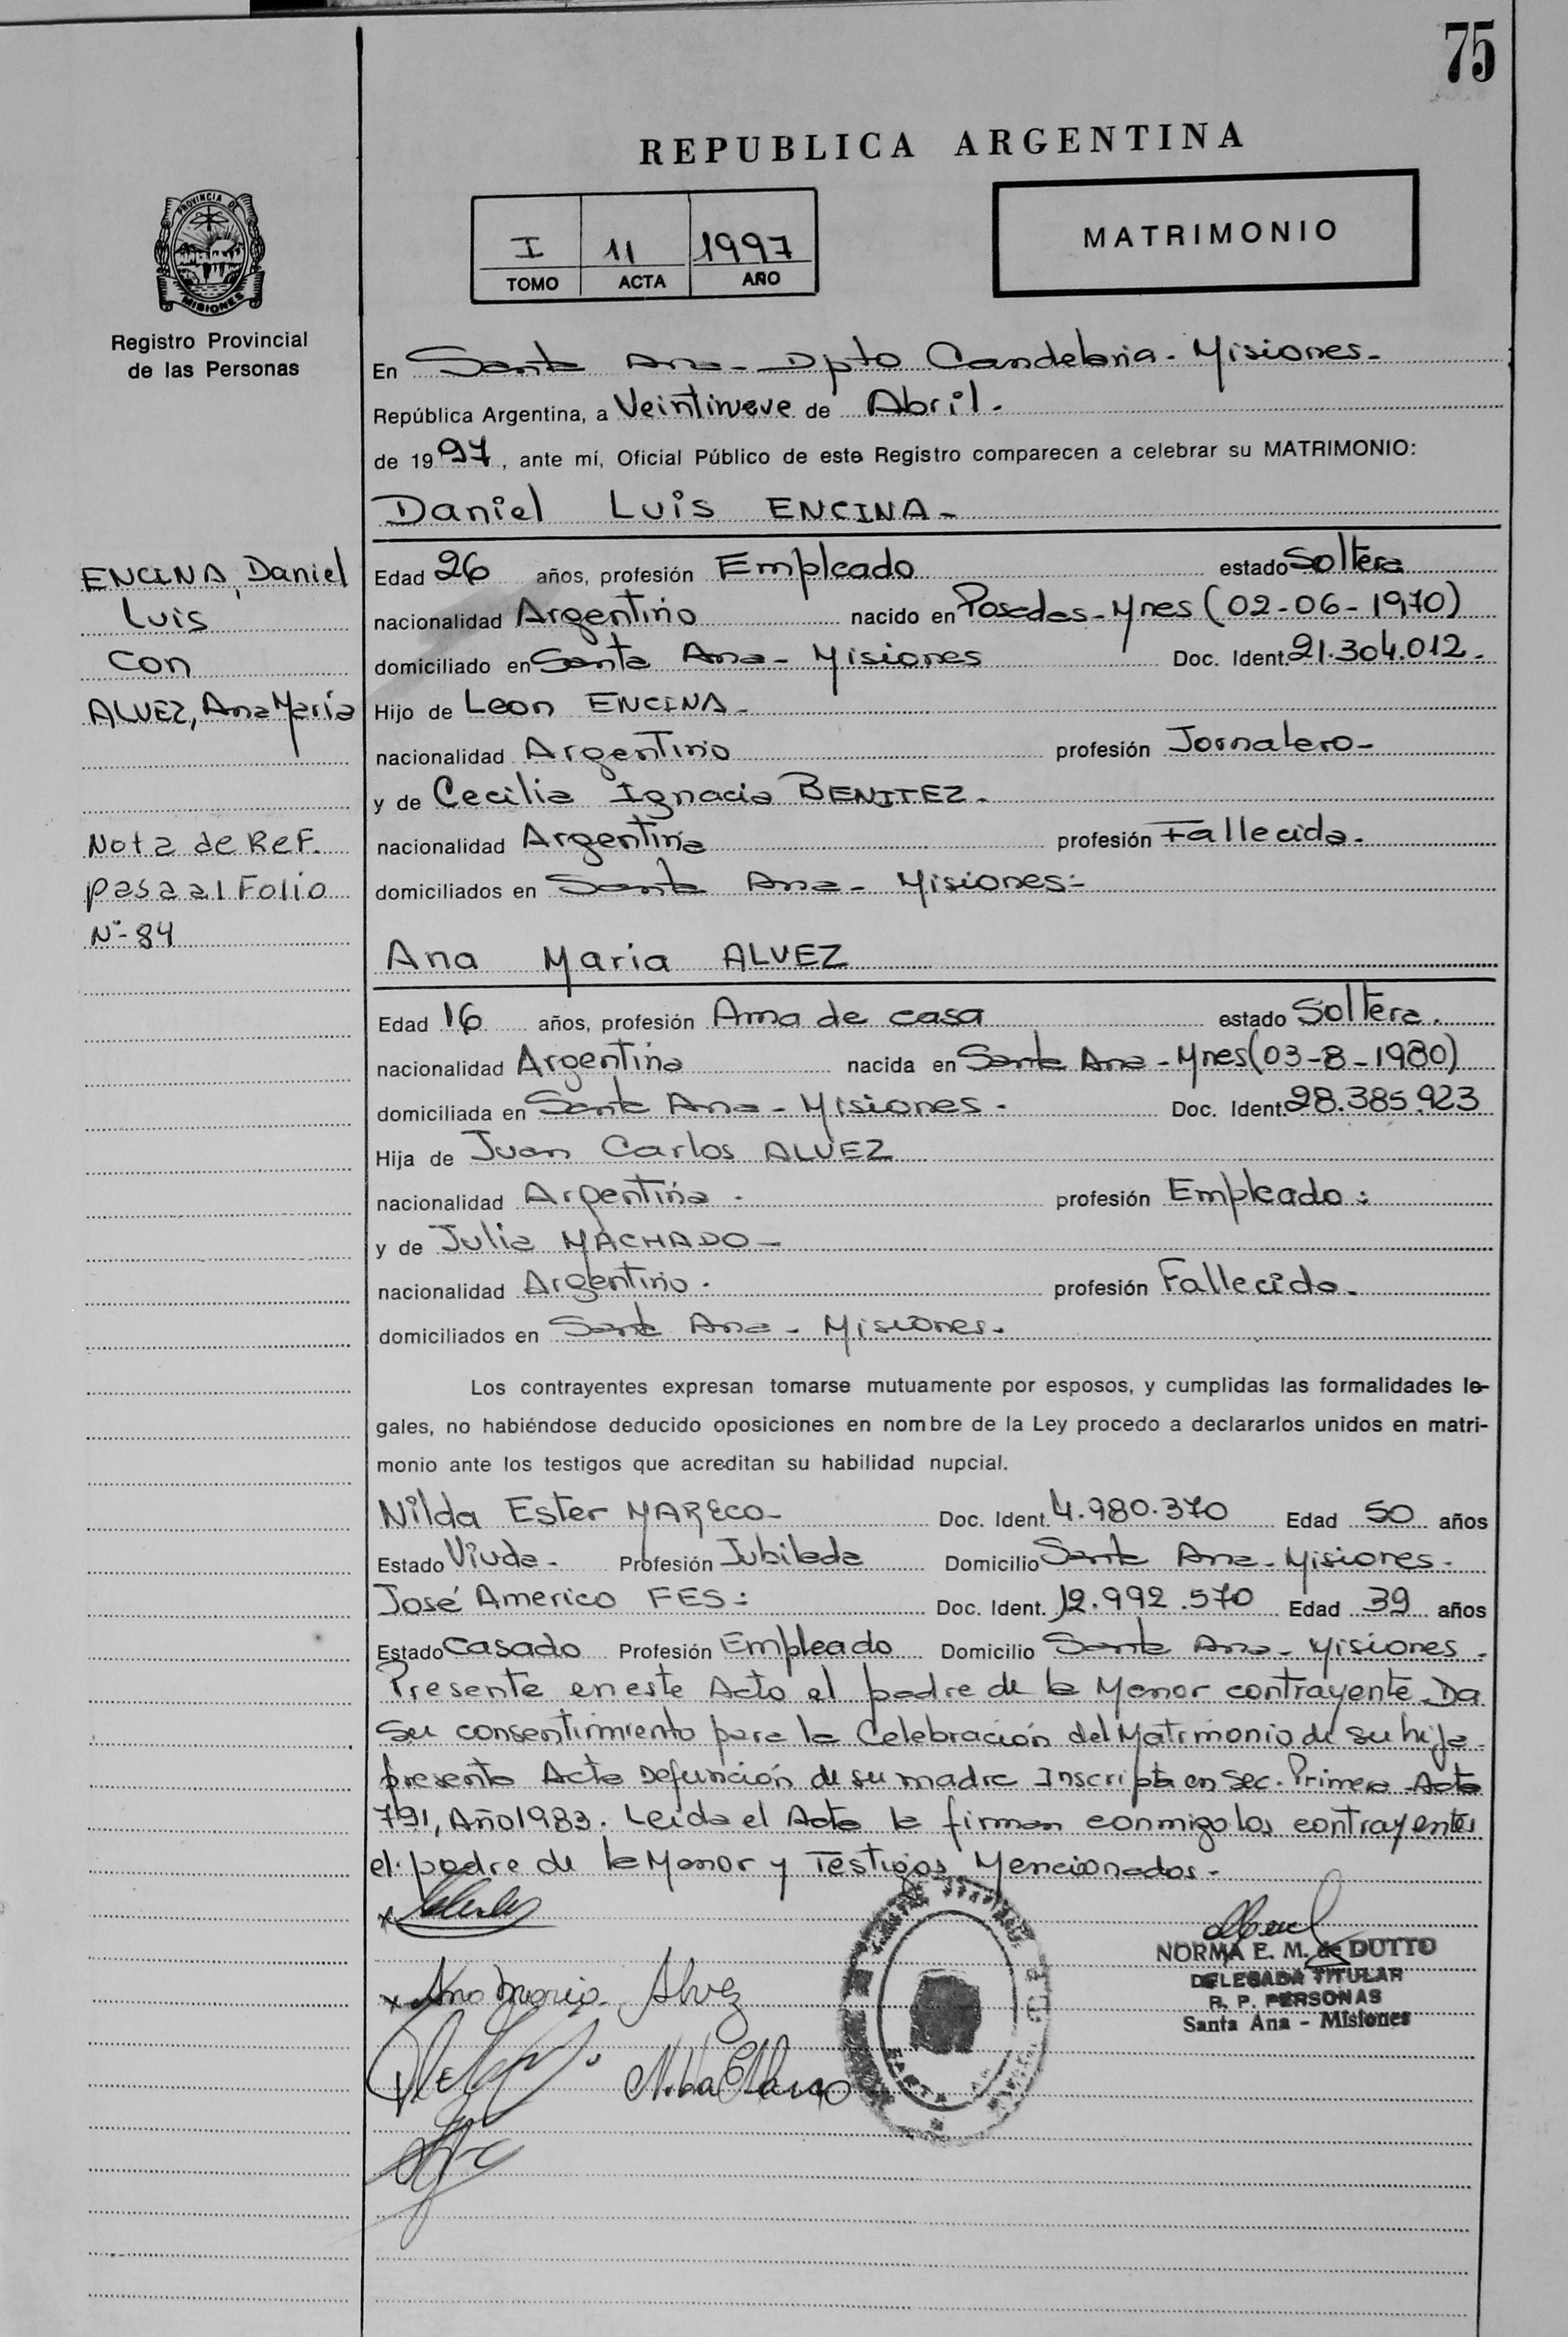 75
REPUBLICA ARGENTINA
PROVINCIA DE
MISIONES
Registro Provincial
de las Personas
I 11 1997
TOMO ACTA AÑO
MATRIMONIO
En Santa Ana - Dpto Candelaria - Misiones -
República Argentina, a Veintinueve de Abril.
de 1997, ante mí, Oficial Público de este Registro comparecen a celebrar su MATRIMONIO:
Daniel Luis ENCINA -
ENCINA, Daniel
Luis
con
ALVEZ, Ana María
Nota de Ref.
pasa al Folio
Nº- 84
Edad 26 años, profesión Empleado estado Soltera
nacionalidad Argentino nacido en Posadas - Mnes (02-06-1970)
domiciliado en Santa Ana - Misiones Doc. Ident. 21.304.012.
Hijo de Leon ENCINA -
nacionalidad Argentino profesión Jornalero -
y de Cecilia Ignacia BENITEZ -
nacionalidad Argentina profesión Fallecida.
domiciliados en Santa Ana - Misiones -
Ana Maria ALVEZ
Edad 16 años, profesión Ama de casa estado Soltera.
nacionalidad Argentina nacida en Santa Ana - Mnes (03-8-1980)
domiciliada en Santa Ana - Misiones - Doc. Ident. 28.385.923
Hija de Juan Carlos ALVEZ
nacionalidad Argentina . profesión Empleado :
y de Julia MACHADO -
nacionalidad Argentino . profesión Fallecida .
domiciliados en Santa Ana - Misiones -
Los contrayentes expresan tomarse mutuamente por esposos, y cumplidas las formalidades le-
gales, no habiéndose deducido oposiciones en nombre de la Ley procedo a declararlos unidos en matri-
monio ante los testigos que acreditan su habilidad nupcial.
Nilda Ester MARECO - Doc. Ident. 4.980.370 Edad 50 años
Estado Viuda - Profesión Jubilada Domicilio Santa Ana - Misiones -
José Americo FES : Doc. Ident. 12.992.570 Edad 39 años
Estado Casado Profesión Empleado Domicilio Santa Ana - Misiones -
Presente en este Acto el padre de la Menor contrayente Da
su consentimiento para la Celebración del Matrimonio de su hija
presenta Acta Defunción de su madre Inscripta en Sec. Primera Acta
791, Año 1983. Leida el Acta la firman conmigo los contrayentes
el padre de la Menor y Testigos Mencionados -
x
x Ana Maria Alvez
NORMA E. M. de DUTTO
DELEGADA TITULAR
R. P. PERSONAS
Santa Ana - Misiones